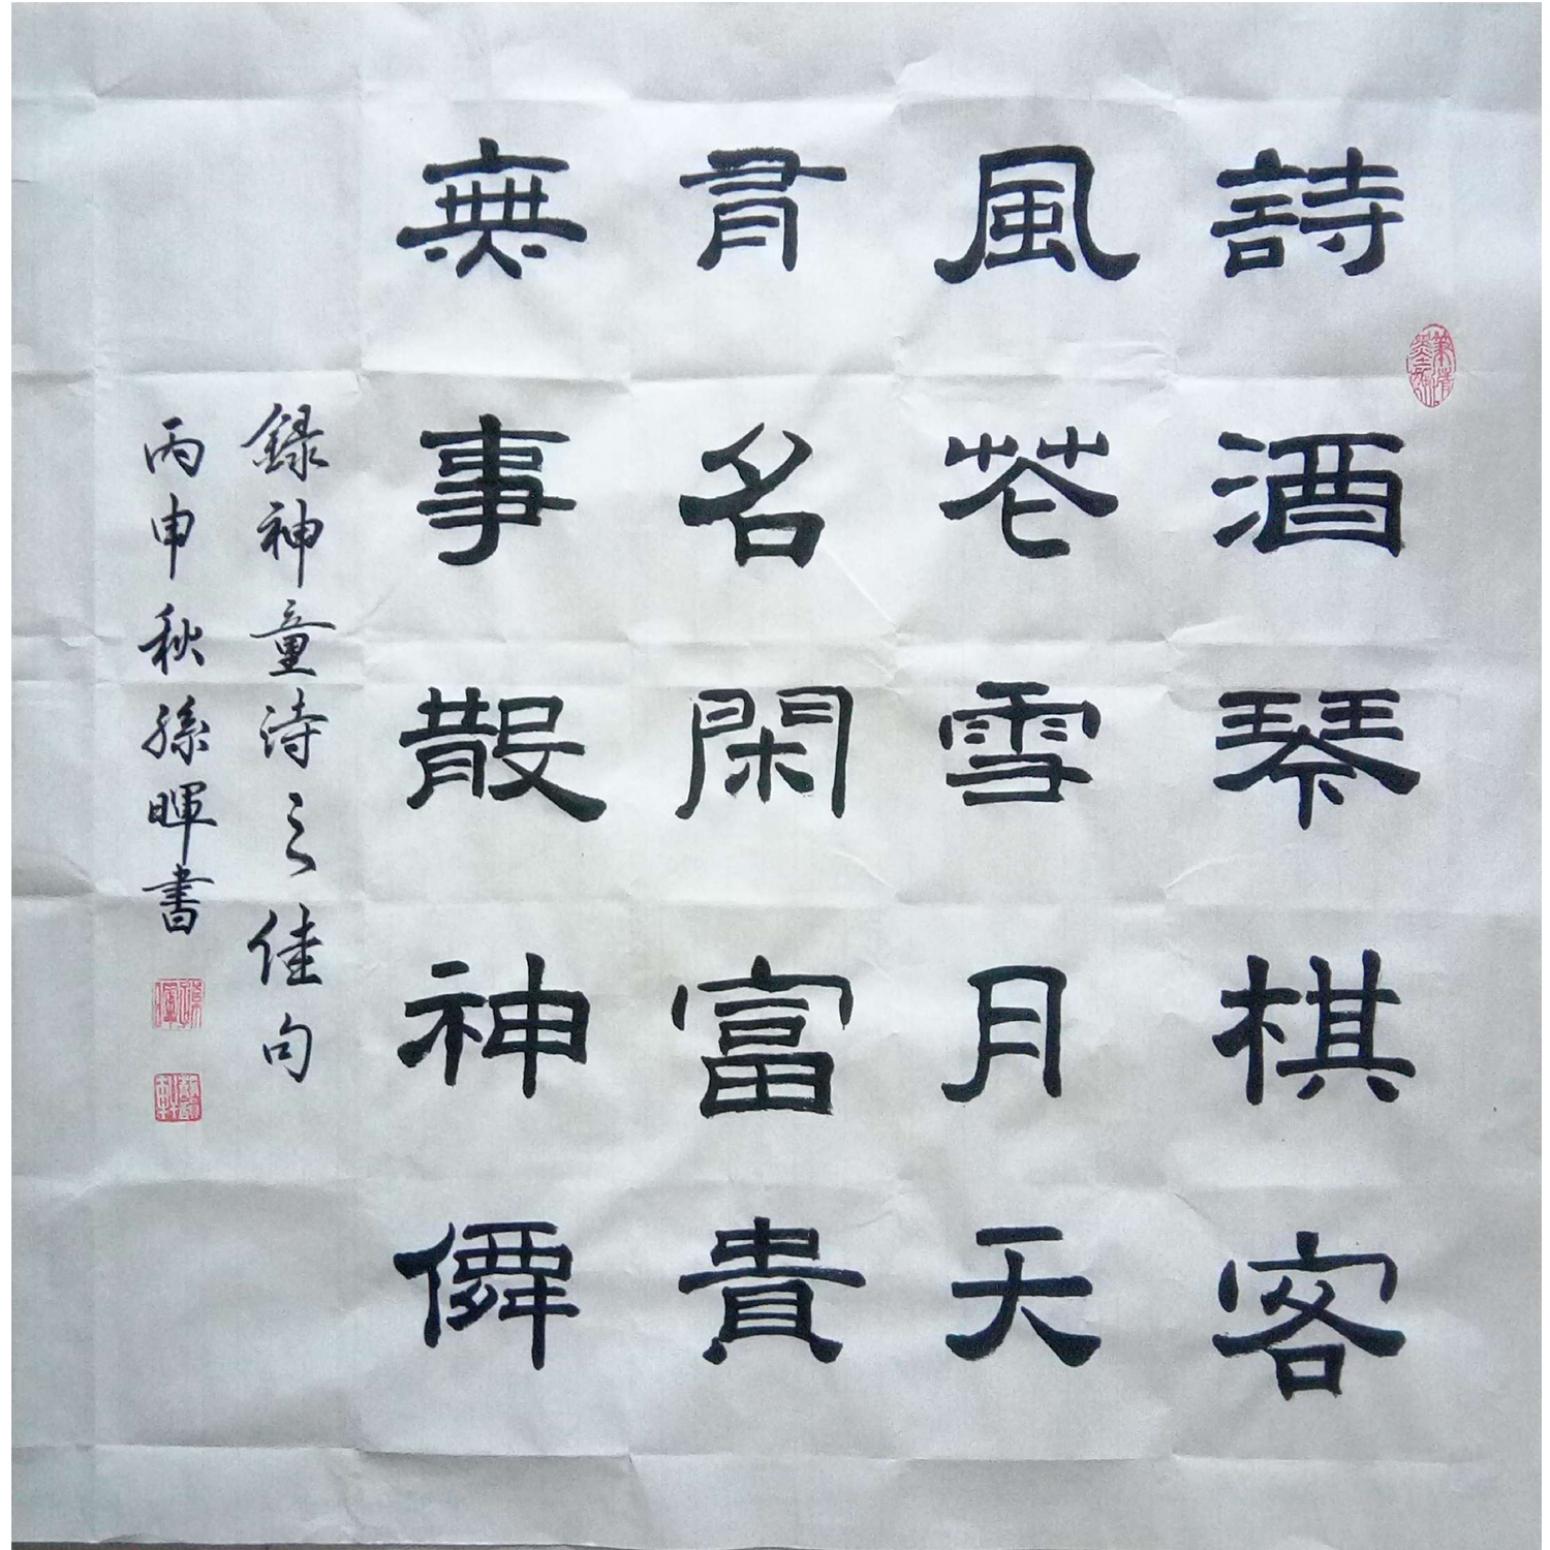 詩酒琴棋客
風花雪月天
有名閑富貴
無事散神僊
録神童詩之佳句
丙申秋孫暉書